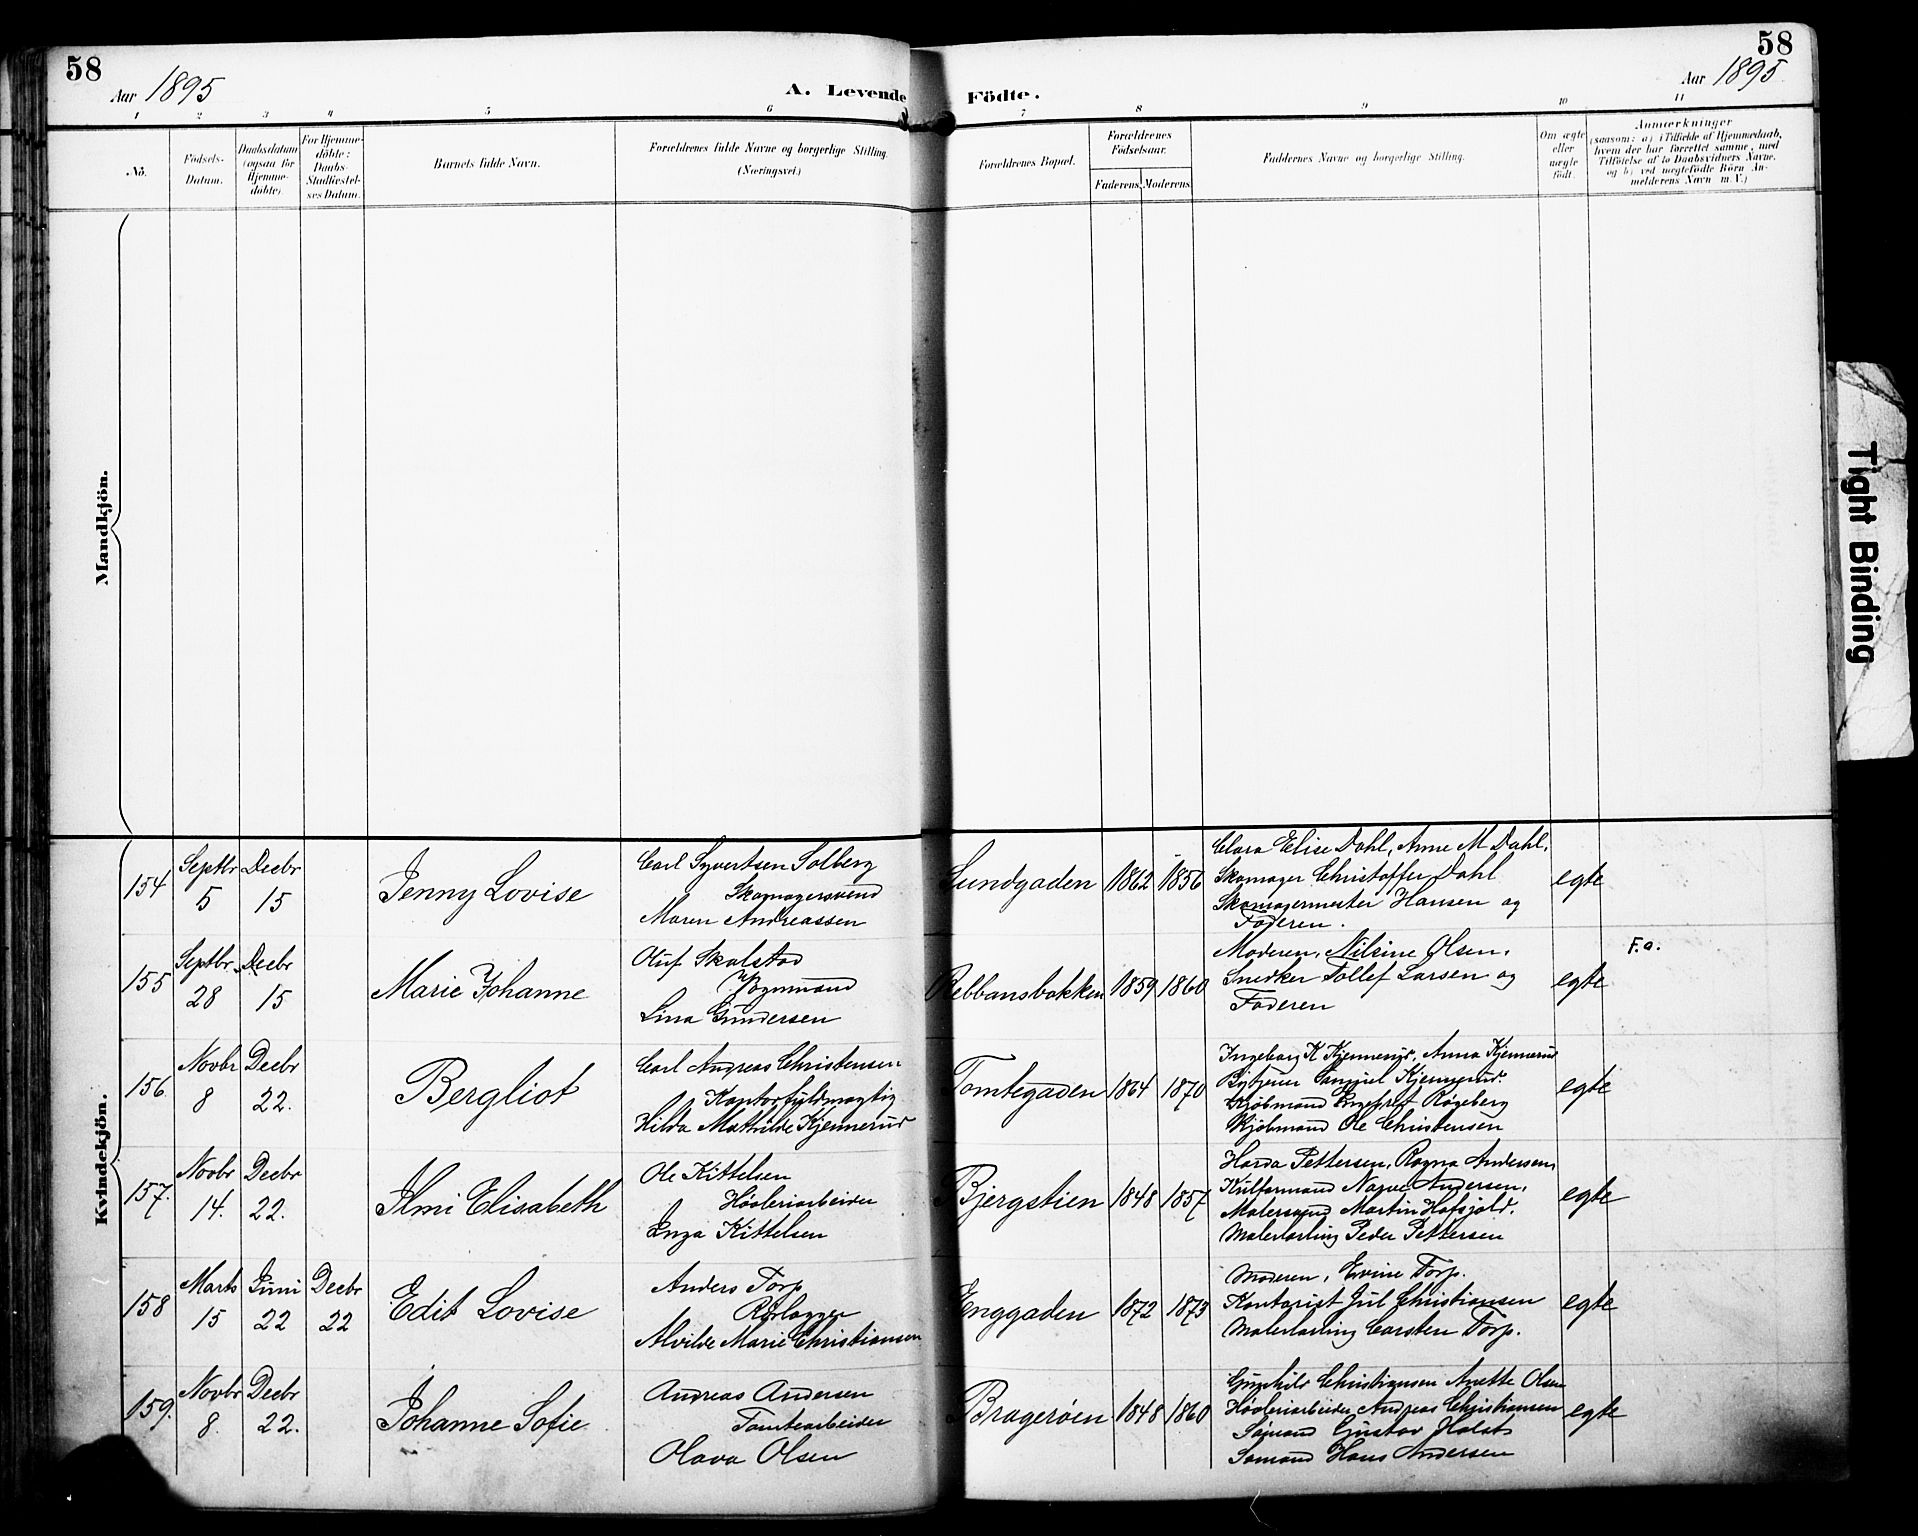 58
58
Aar 1895
A. Levende Födte.
Aar 1895
1 2 3 4 5 6 7 8 9 10 11
No.
Födsels-
Datum.
Daabsdatum
(ogsaa för
Hjemme-
döbte).
For Hjemme-
döbte:
Daabs-
Stadfæstel-
ses Datum.
Barnets fulde Navn.
Forældrenes fulde Navne og borgerlige Stilling.
(Næringsvei.)
Forældrenes Bopæl.
Forældrenes
Födselsaar.
Faderens. Moderens.
Faddernes Navne og borgerlige Stilling.
Om ægte
eller
uægte
födt.
Anmærkninger
(saasom: a) i Tilfælde af Hjemmedaab,
hvem der har forrettet samme, med
Tilföielse af to Daabsvidners Navne.
og b) ved uægtefödte Börn An-
melderens Navn m. V.)
Mandkjön.
Kvindekjön.
154
Septbr
5
Decbr
15
Jenny Lovise
Carl Syvertsen Solberg
Skomagersvend
Maren Andreassen
Lundgaden
1862
1856
Clara Elise Dahl, Anne M Dahl,
Skomager Christoffer Dahl
Skomagermester Hansen og
Faderen.
egte
155
Septbr
28
Decbr
15
Marie Johanne
Oluf Skalstad
Vognmand
Lina Gundersen
Rebbansbakken
1859
1860
Moderen, Nilsine Olsen,
Snedker Tollef Larsen og
Faderen
egte
F.a.
156
Novbr
8
Decbr
22.
Bergliot
Carl Andreas Christensen
Kontorfuldmægtig
Hilda Mathilde Kjennerud
Tomtegaden
1864
1870
Ingeborg K Kjennerud, Anna Kjennerud
Kjennerud.
Kjøbmand Røgeberg
Kjøbmand Ole Christensen
egte
157.
Novbr
14.
Decbr
22.
Ilmi Elisabeth
Ole Kittelsen
Høvleriarbeider
Inga Kittelsen
Bjergstien
1848
1857
Harda Pettersen, Ragna Andersen,
Andersen,
Malersvend Martin Hafsjold.
Malerlærling Peder Pettersen
egte
158
Marts
15
Juni
22
Decbr
22
Edit Lovise
Anders Torp
Rørlægger
Alvilde Marie Christiansen
Enggaden
1872
1873
Moderen, Evine Torp.
Kontorist Jul Christiansen
Malerlærling Carsten Torp.
egte
159.
Novbr
8.
Decbr
22.
Johanne Sofie
Andreas Andersen
Tomtearbeider
Olava Olsen
Bragerøen
1848
1860
Gunhild Christiansen Anette Olsen
Høvleriarbeider Andreas Christiansen
Sømand Gustav Holst
Sømand Hans Andersen
egte
Tight Binding